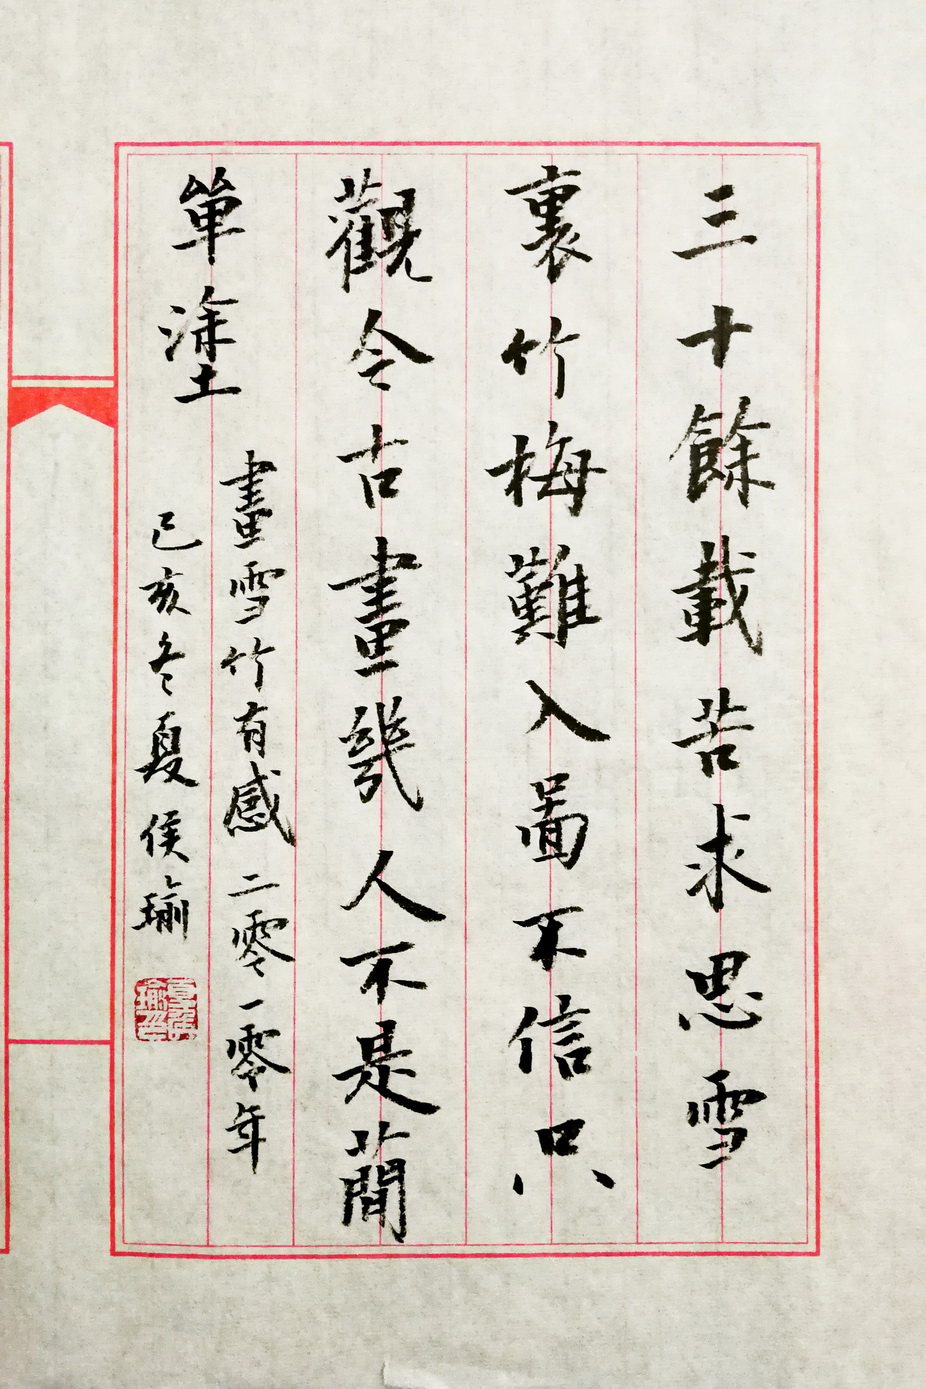 三十餘載苦求思雪
裏竹梅難入畵不信只
觀今古畫幾人不是簡
單塗
畫雪竹有感二零一零年
己亥冬夏侯瑜